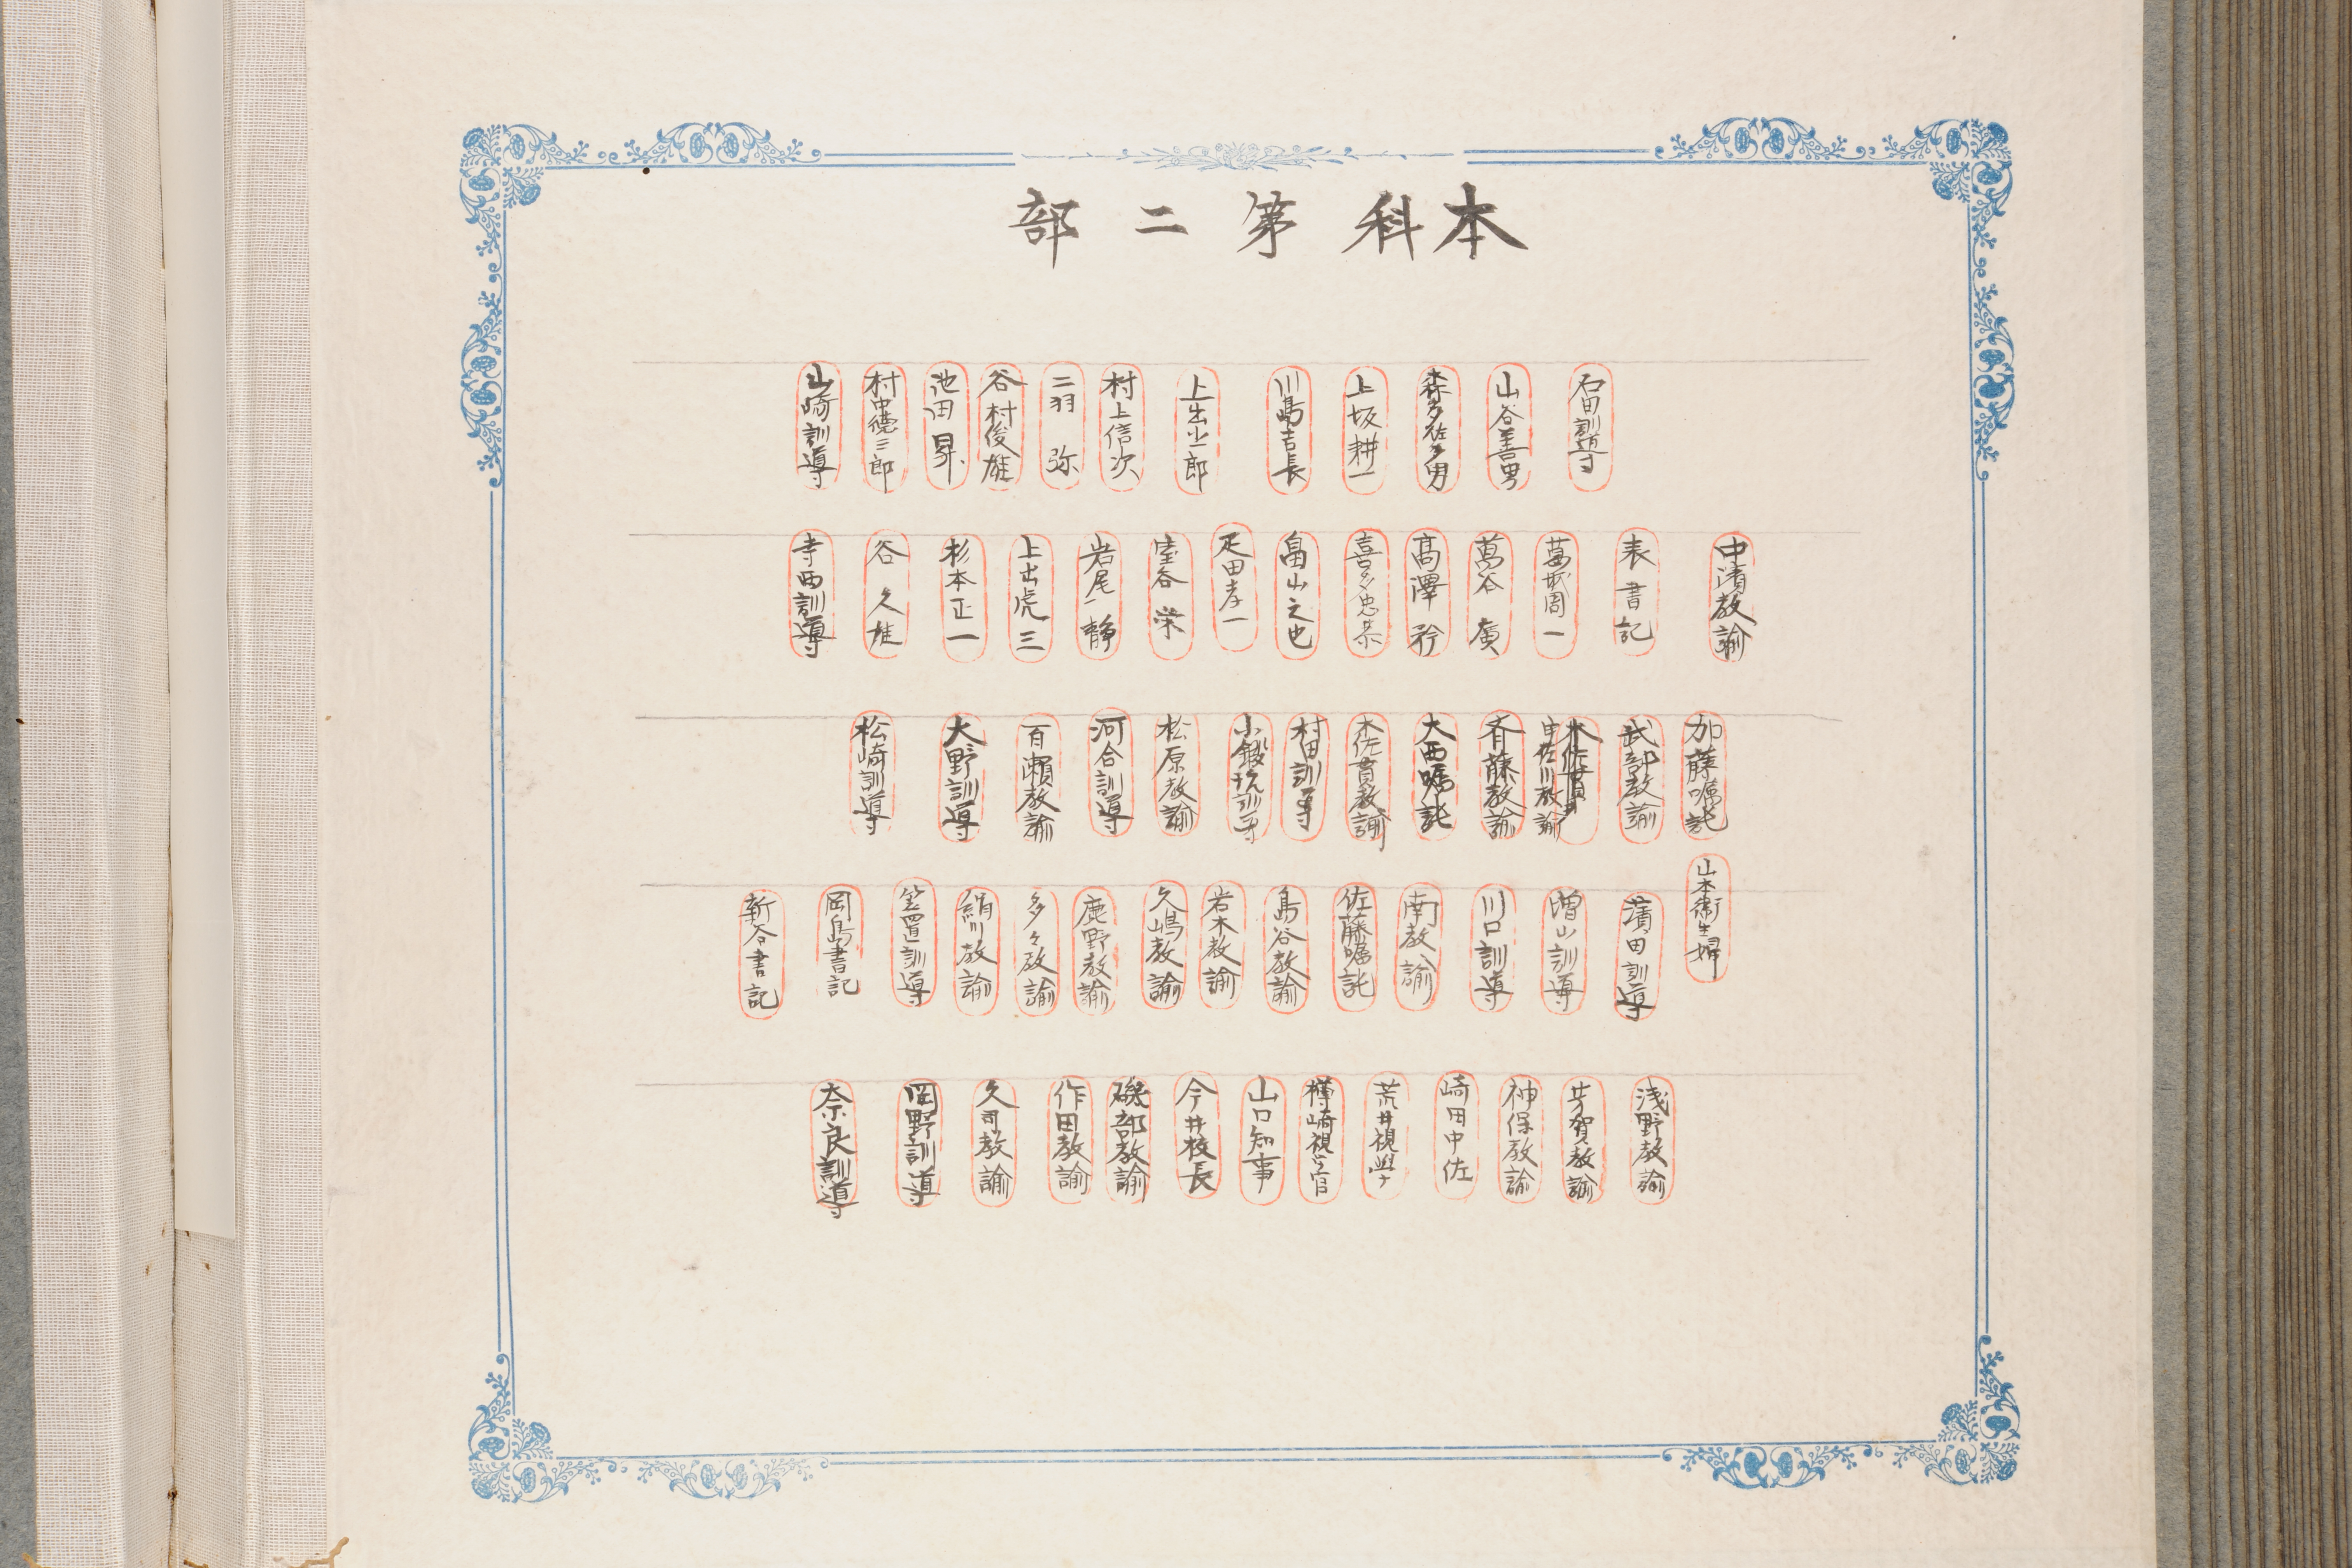 本科第二部
石田訓導
山谷善男
森多佐男
上坂耕一
川島吉長
上出三郎
村上信次
二羽弥
谷村俊雄
池田昇
村中德三郎
山崎訓導
中濱教諭
表書記
葛城周一
萬谷廣
髙澤矜
喜多忠恭
畠山之也
疋田孝一
室谷栄
岩尾静
上出虎三
杉本正一
谷久雄
寺西訓導
加藤嘱託
武部教諭
宇佐川教諭
斉藤教諭
大西嘱託
木佐貫教諭
村田訓導
小鍛冶訓導
松原教諭
河合訓導
百瀬教諭
大野訓導
松崎訓導
山本衛生婦
濱田訓導
増山訓導
川口訓導
南教諭
佐藤嘱託
島谷教諭
岩木教諭
久嶋教諭
鹿野教諭
多々教諭
絹川教諭
笠置訓導
岡島書記
新谷書記
浅野教諭
芳賀教諭
神保教諭
崎田中佐
荒井視學
樽崎視学官
山口知事
今井校長
磯部教諭
作田教諭
久司教諭
岡野訓導
奈良訓導